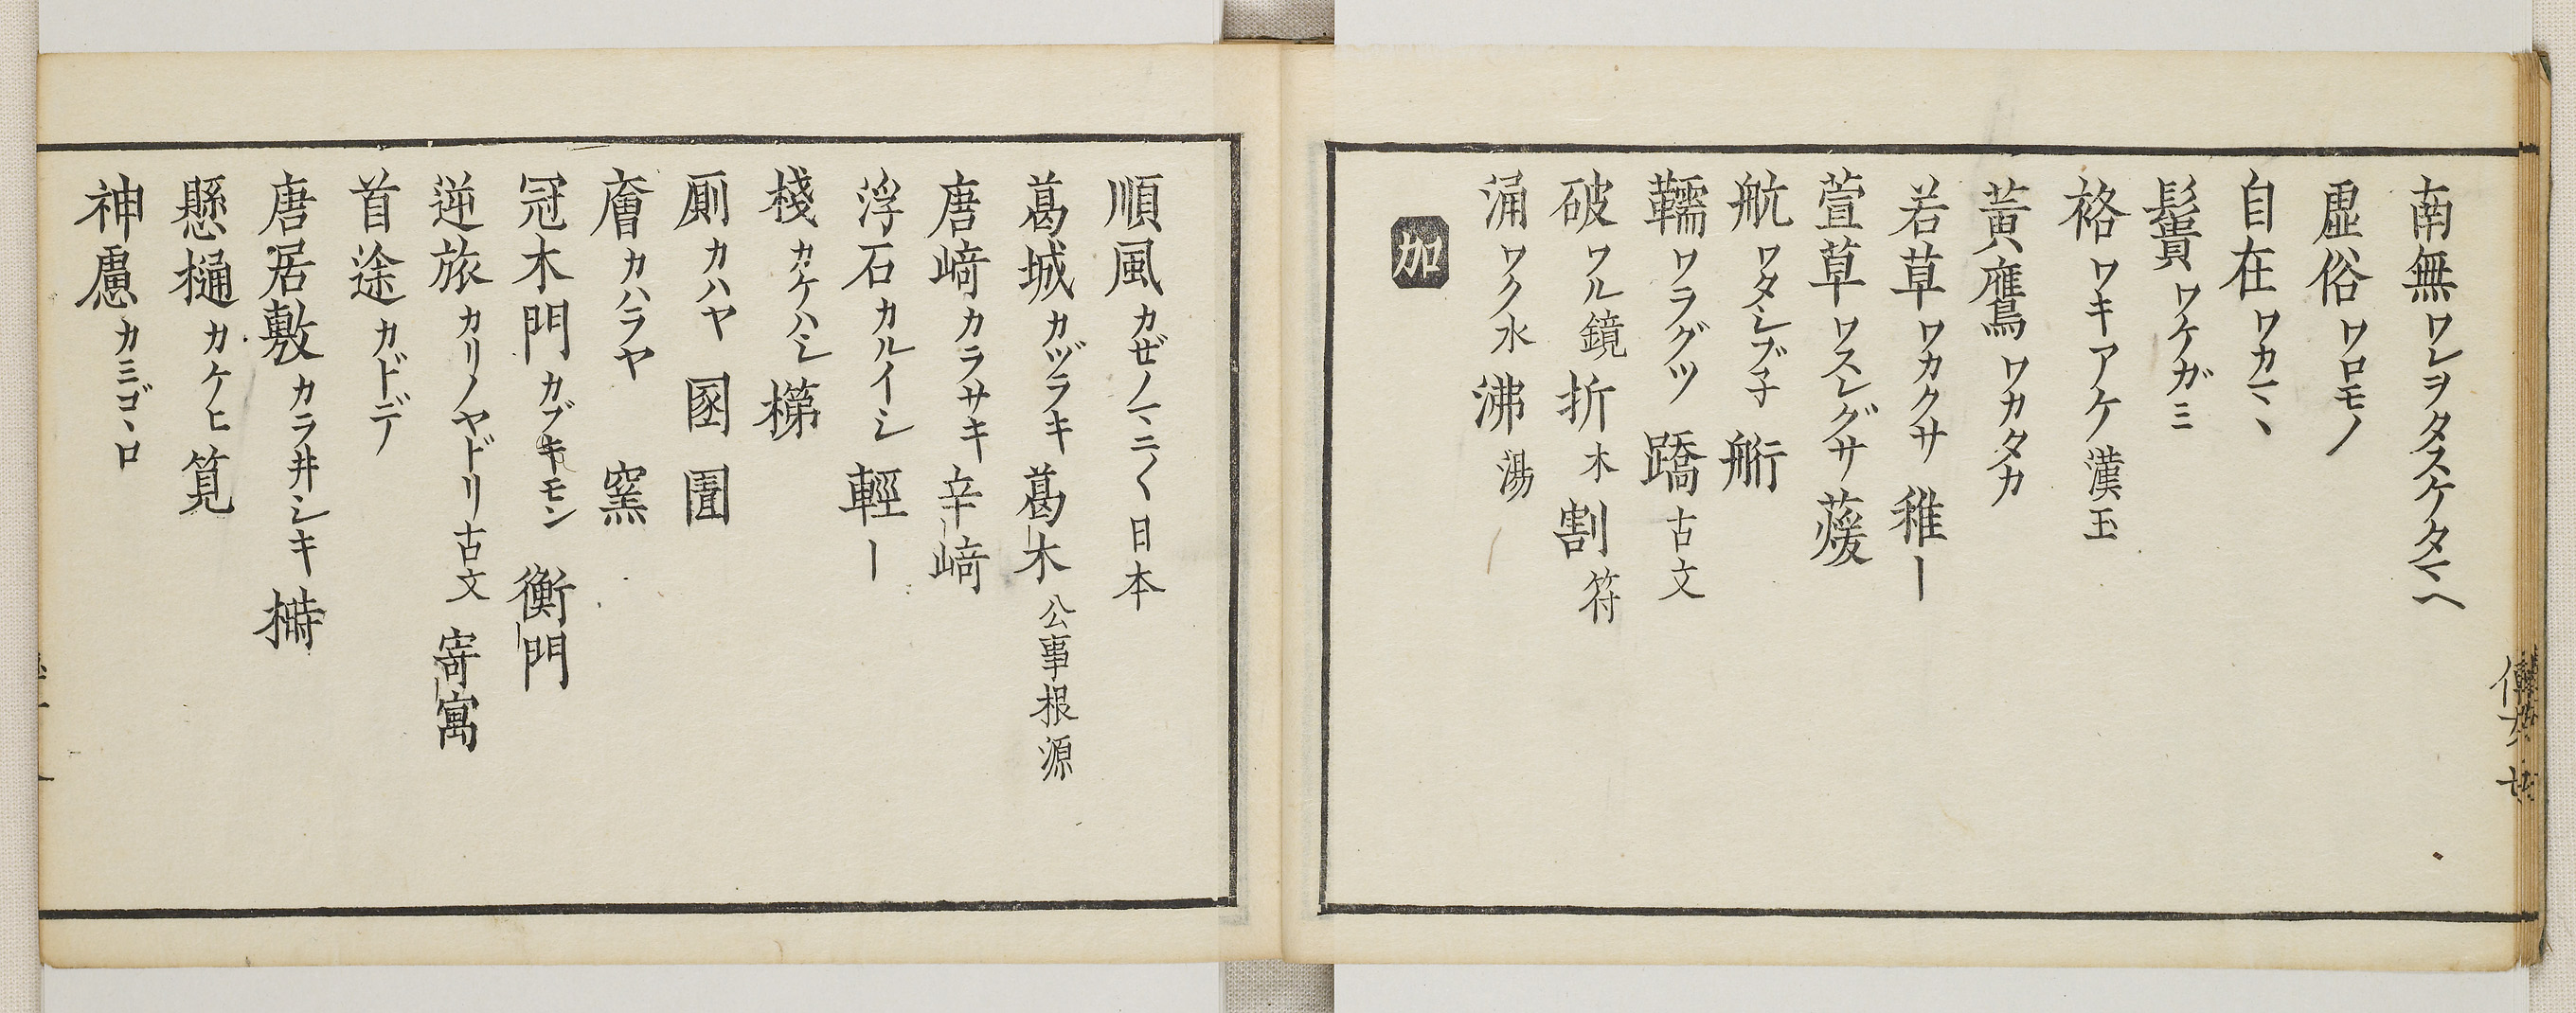 南無 ワレヲタスケタマヘ
虚俗 ワロモノ
自在 ワカマヽ
鬢 ワケガミ
袼 ワキアケ 漢玉
黄鷹 ワカタカ
若草 ワカクサ 稚ー
萱草 ワスレグサ 萲
航 ワタシブ子 䑪
鞴 ワラグツ 蹻 古文
破 ワル 鏡 折 木 割 符
涌 ワク 水 沸 湯
加
順風 カゼノマニ〱 日本
葛城 カヅラキ 葛木 公事根源
唐﨑 カラサキ 辛﨑
浮石 カルイシ 輕ー
棧 カケハシ 梯
厠 カハヤ 圂 圊
廥 カハラヤ 窯
冠木門 カブキモン 衡門
逆旅 カリノヤドリ 古文 寄寓
首途 カドデ
唐居敷 カラヰシキ
懸樋 カケヒ 筧
神慮 カミゴヽロ